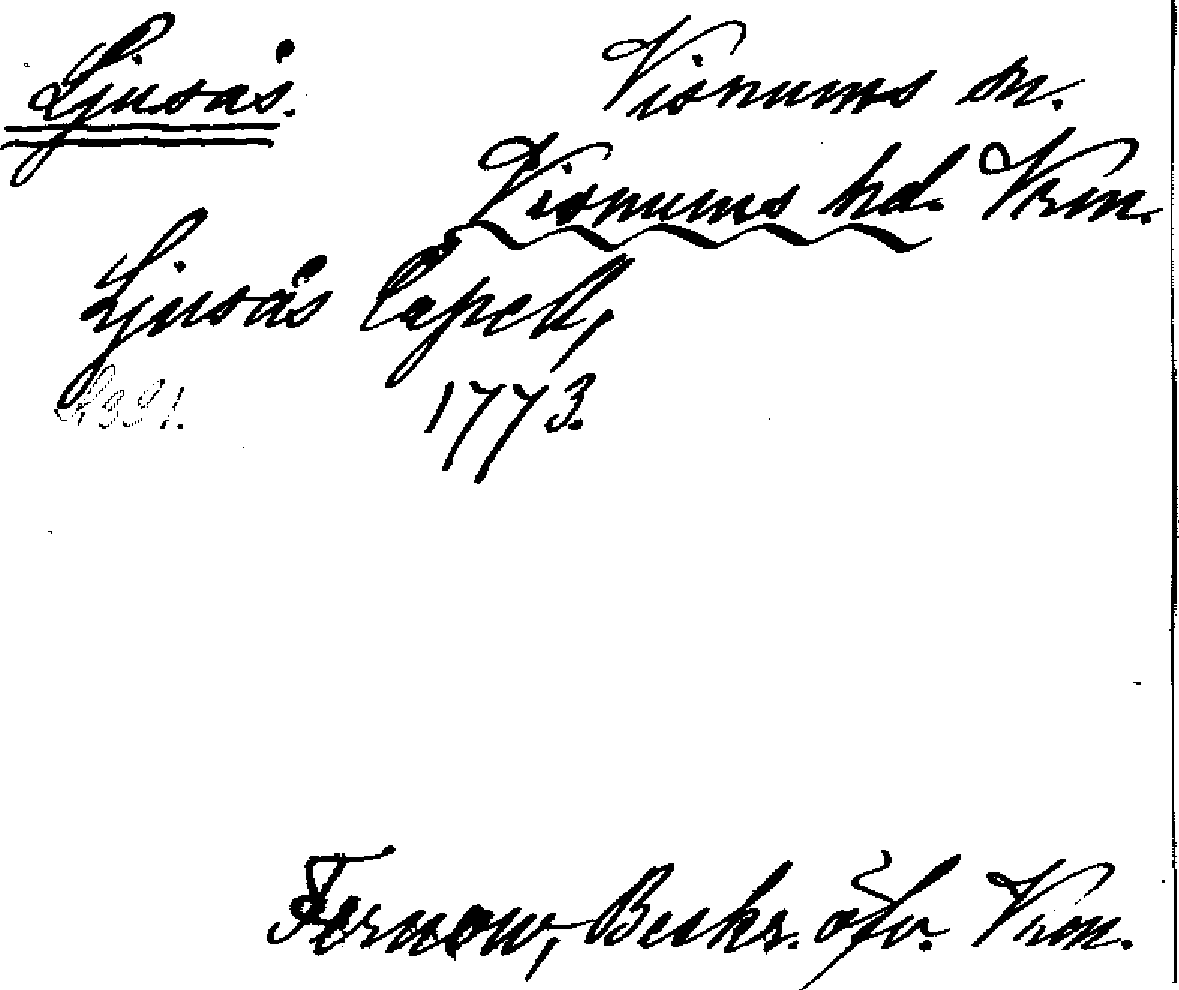 Ljusås.
Visnums sn.
Visnums hd. Vrm.
Ljusås Capell,
1773.
Fernow, Beskr. öfv. Vrm.